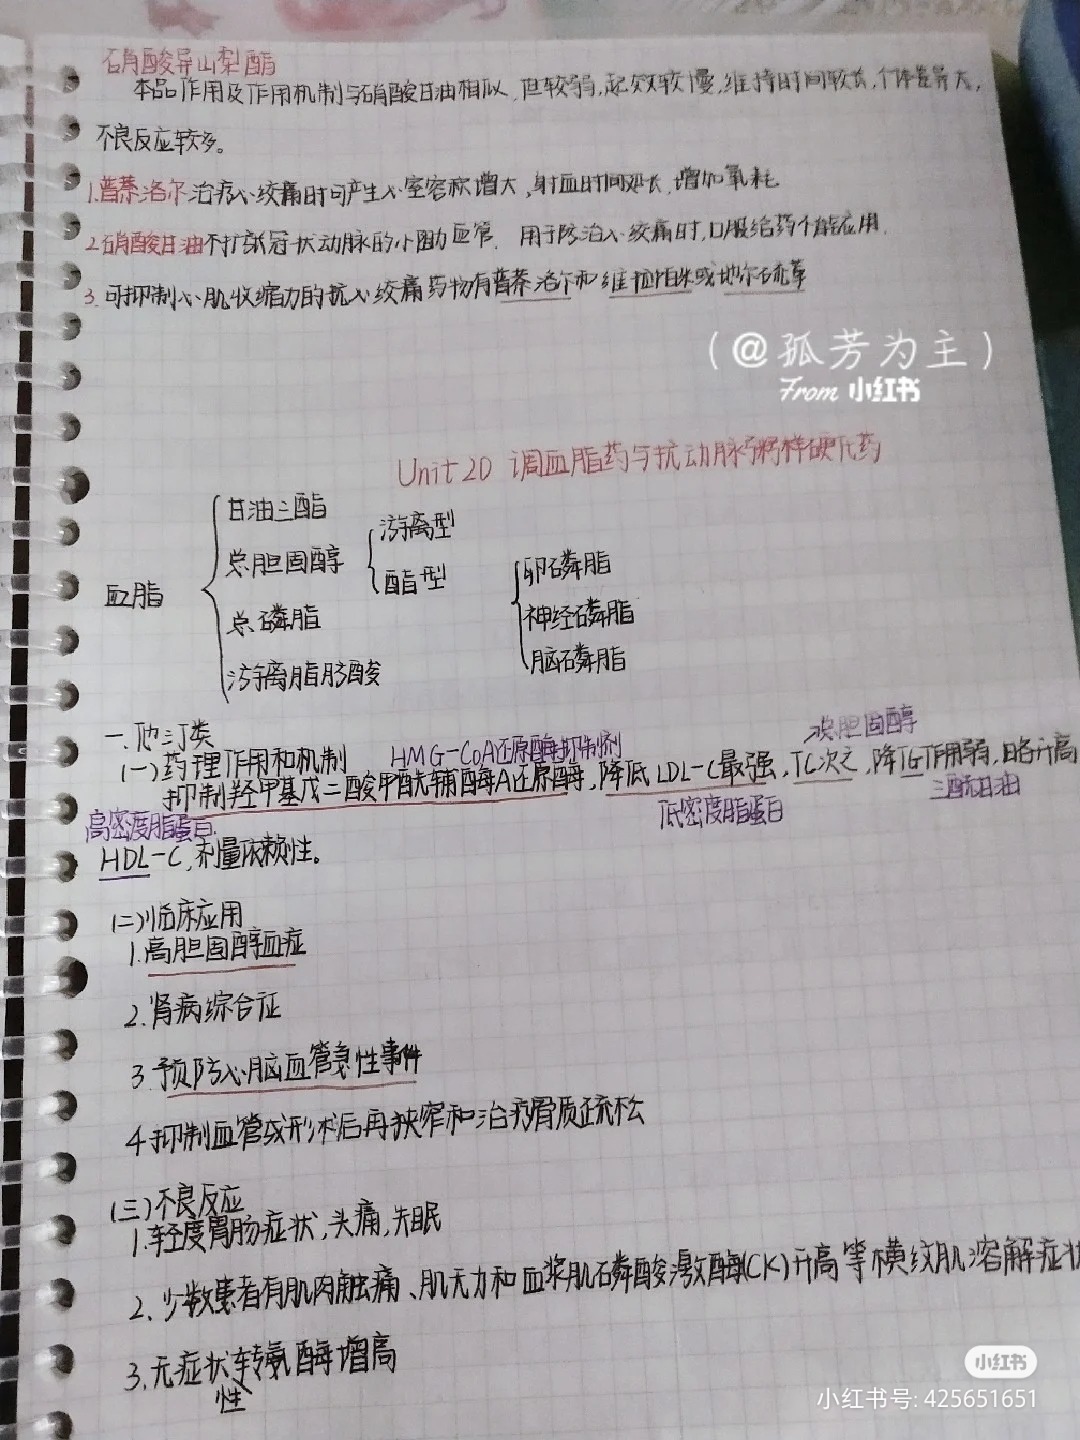 硝酸异山梨酯
本品作用及作用机制与硝酸甘油相似,但较弱,起效较慢,维持时间较长,个体差异大,
不良反应较多。
1.普萘洛尔治疗心绞痛时可产生心室容积增大,射血时间延长,增加氧耗
2.硝酸甘油不扩张冠状动脉的小阻力血管,用于防治心绞痛时,口服给药不能应用.
3.可抑制心肌收缩力的抗心绞痛药物有普萘洛尔和维拉帕米或地尔硫䓬
(@孤芳为主)
From 小红书
Unit 20 调血脂药与抗动脉粥样硬化药
甘油三酯
游离型
总胆固醇
酯型
卵磷脂
血脂
总磷脂
神经磷脂
脑磷脂
游离脂肪酸
一.他汀类
(一)药理作用和机制
HMG-CoA还原酶抑制剂
总胆固醇
抑制羟甲基戊二酸甲酰辅酶A还原酶,降低LDL-C最强,TC次之,降TG作用弱,略升高
高密度脂蛋白.
低密度脂蛋白
三酰甘油
HDL-C,剂量依赖性。
(二)临床应用
1.高胆固醇血症
2.肾病综合征
3.预防心脑血管急性事件
4.抑制血管成形术后再狭窄和治疗骨质疏松
(三)不良反应
1.轻度胃肠症状,头痛,失眠
2.少数患者有肌肉触痛、肌无力和血浆肌磷酸激酶(CK)升高等横纹肌溶解症状
3.无症状转氨酶增高
性
小红书
小红书号: 425651651